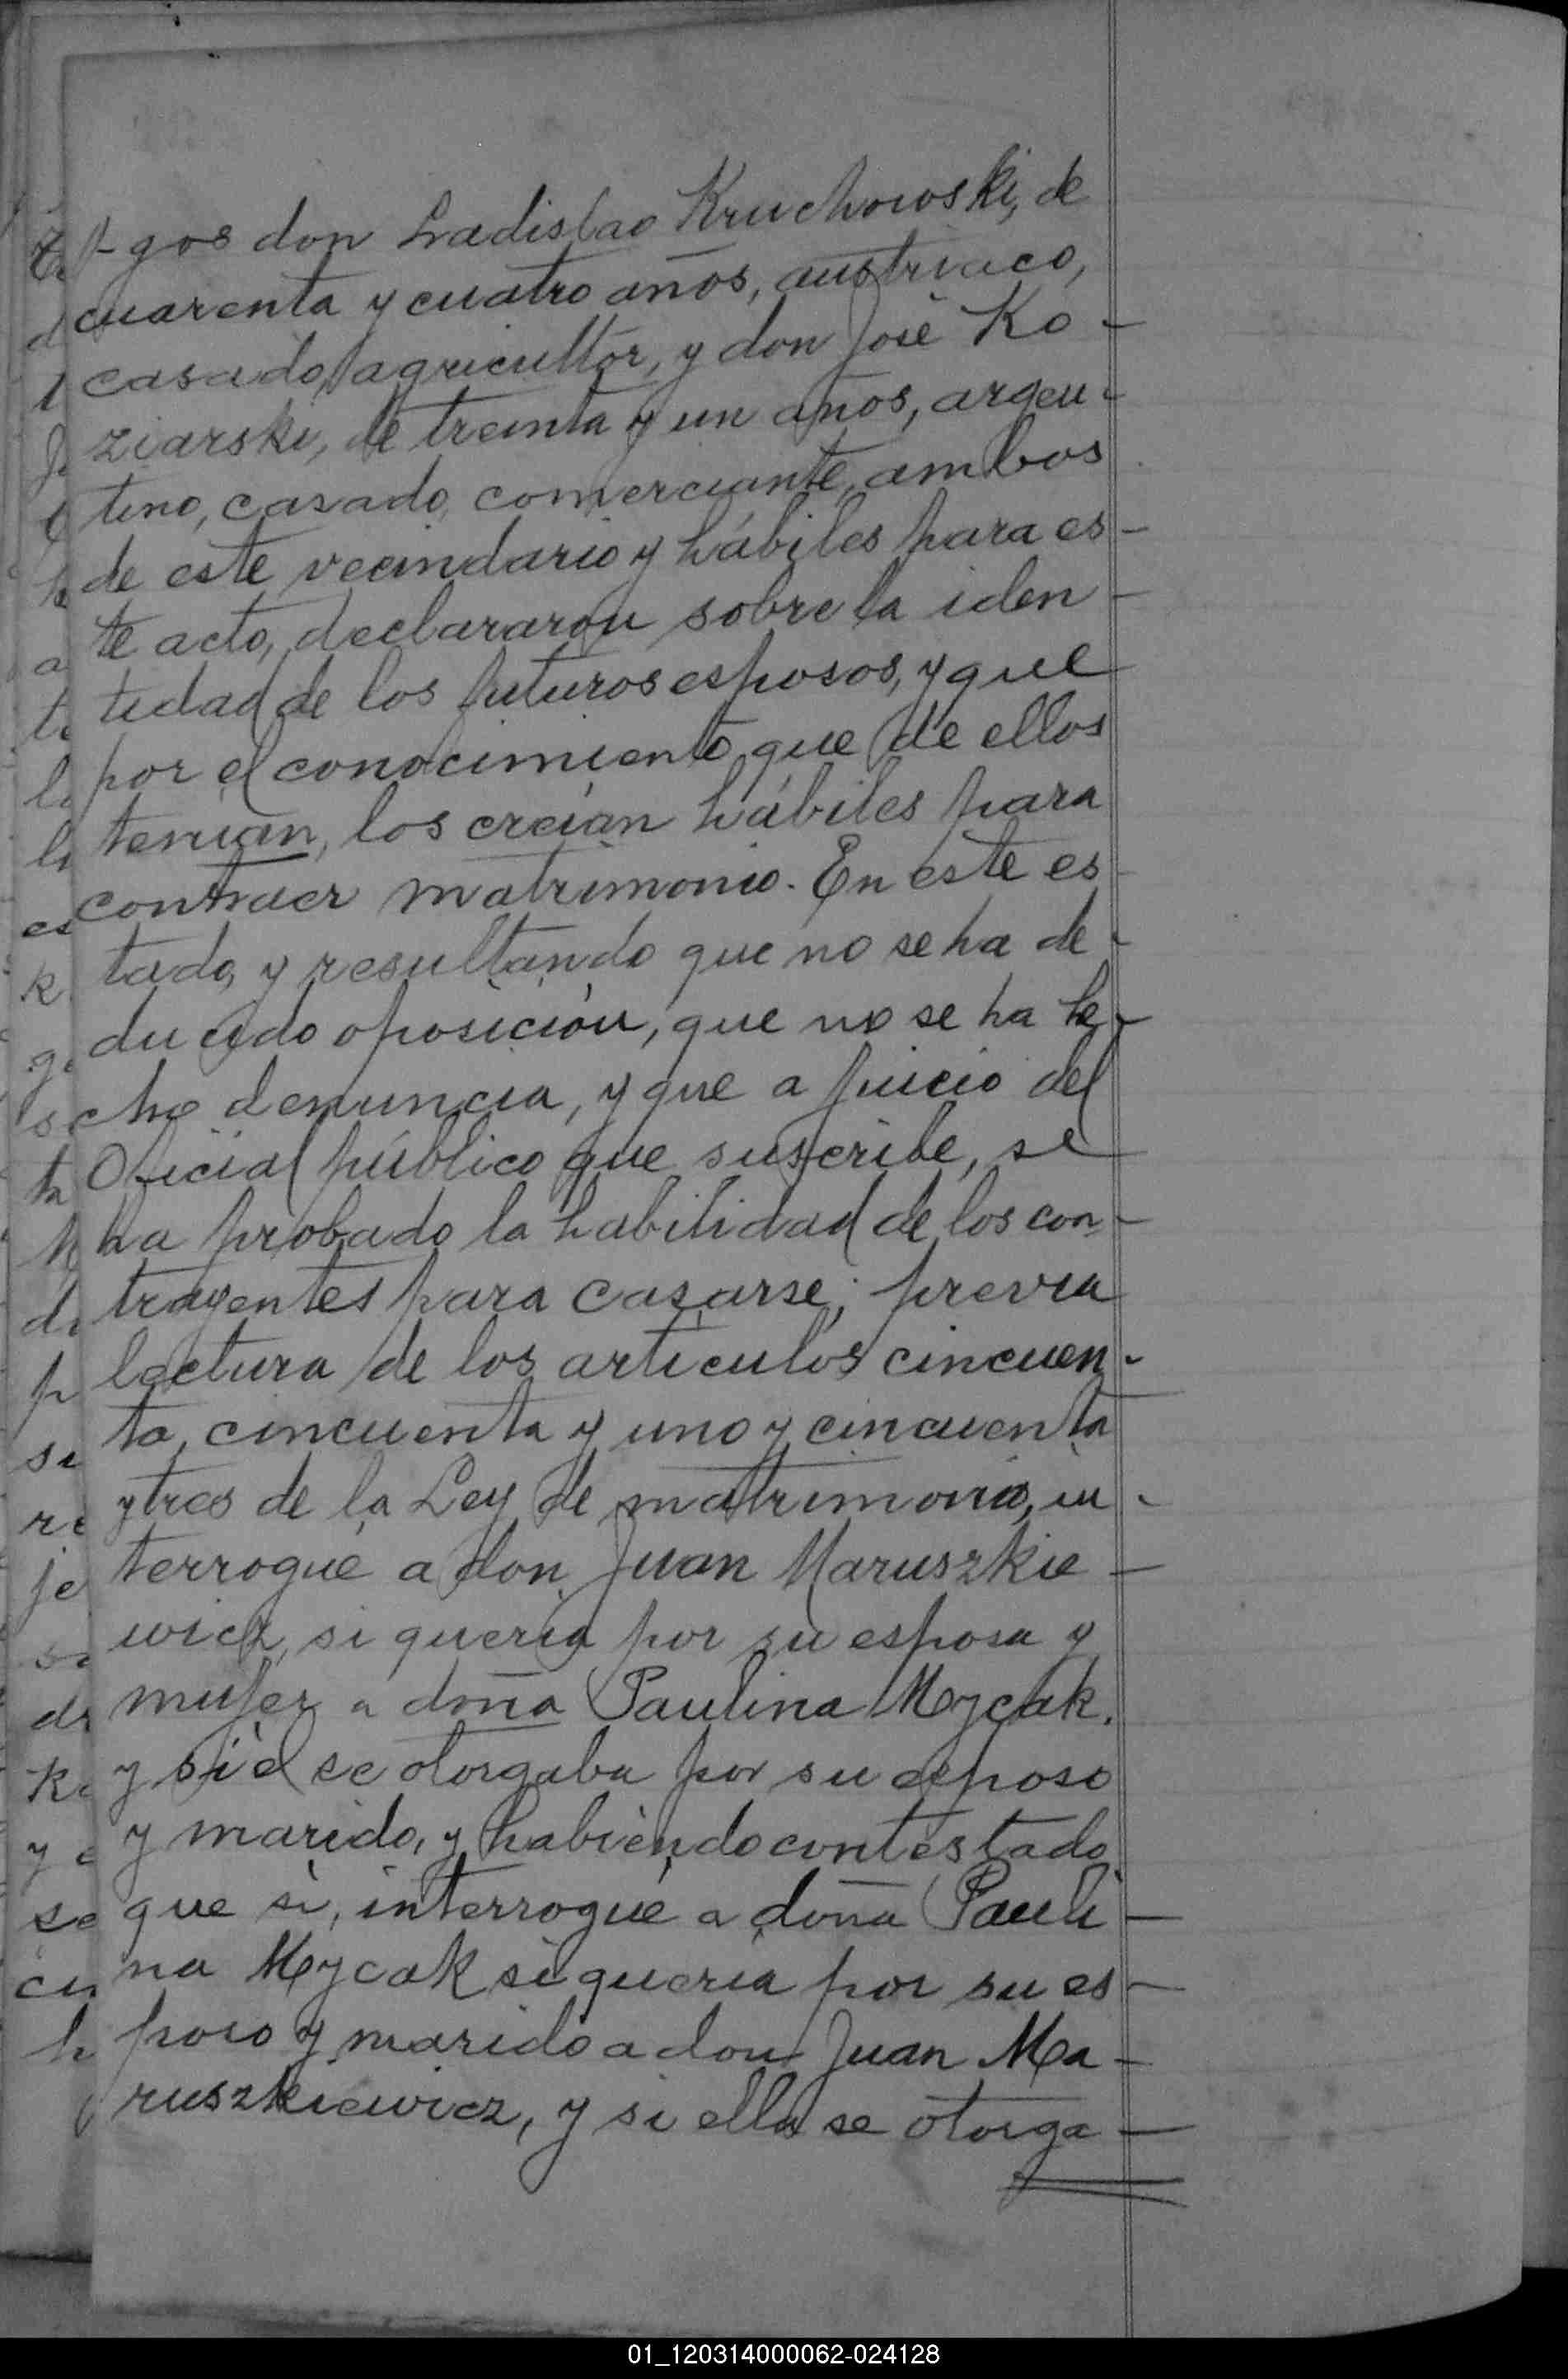 gos don Ladislao Kruchowski, de
cuarenta y cuatro años, austriaco,
casado, agricultor, y don José Ko-
ziarski, de treinta y un años, argen-
tino, casado, comerciante, ambos
de este vecindario y hábiles para es-
te acto, declararon sobre la iden-
tidad de los futuros esposos, y que
por el conocimiento que de ellos
tenian, los creían hábiles para
contraer matrimonio. En este es-
tado, y resultando que no se ha de-
ducido oposición, que no se ha he-
cho denuncia, y que a juicio del
Oficial público que suscribe, se
ha probado la habilidad de los con-
trayentes para casarse; previa
lectura de los artículos cincuen-
ta, cincuenta y uno y cincuenta
y tres de la Ley de matrimonio, in-
terrogué a don Juan Maruszkie-
wicz, si quería por su esposa y
mujer a doña Paulina Mycak,
y si él se otorgaba por su esposo
y marido, y habiendo contestado
que sí, interrogué a doña Pauli-
na Mycak si quería por su es-
poso y marido a don Juan Ma-
ruszkiewicz, y si ella se otorga-
01_120314000062-024128